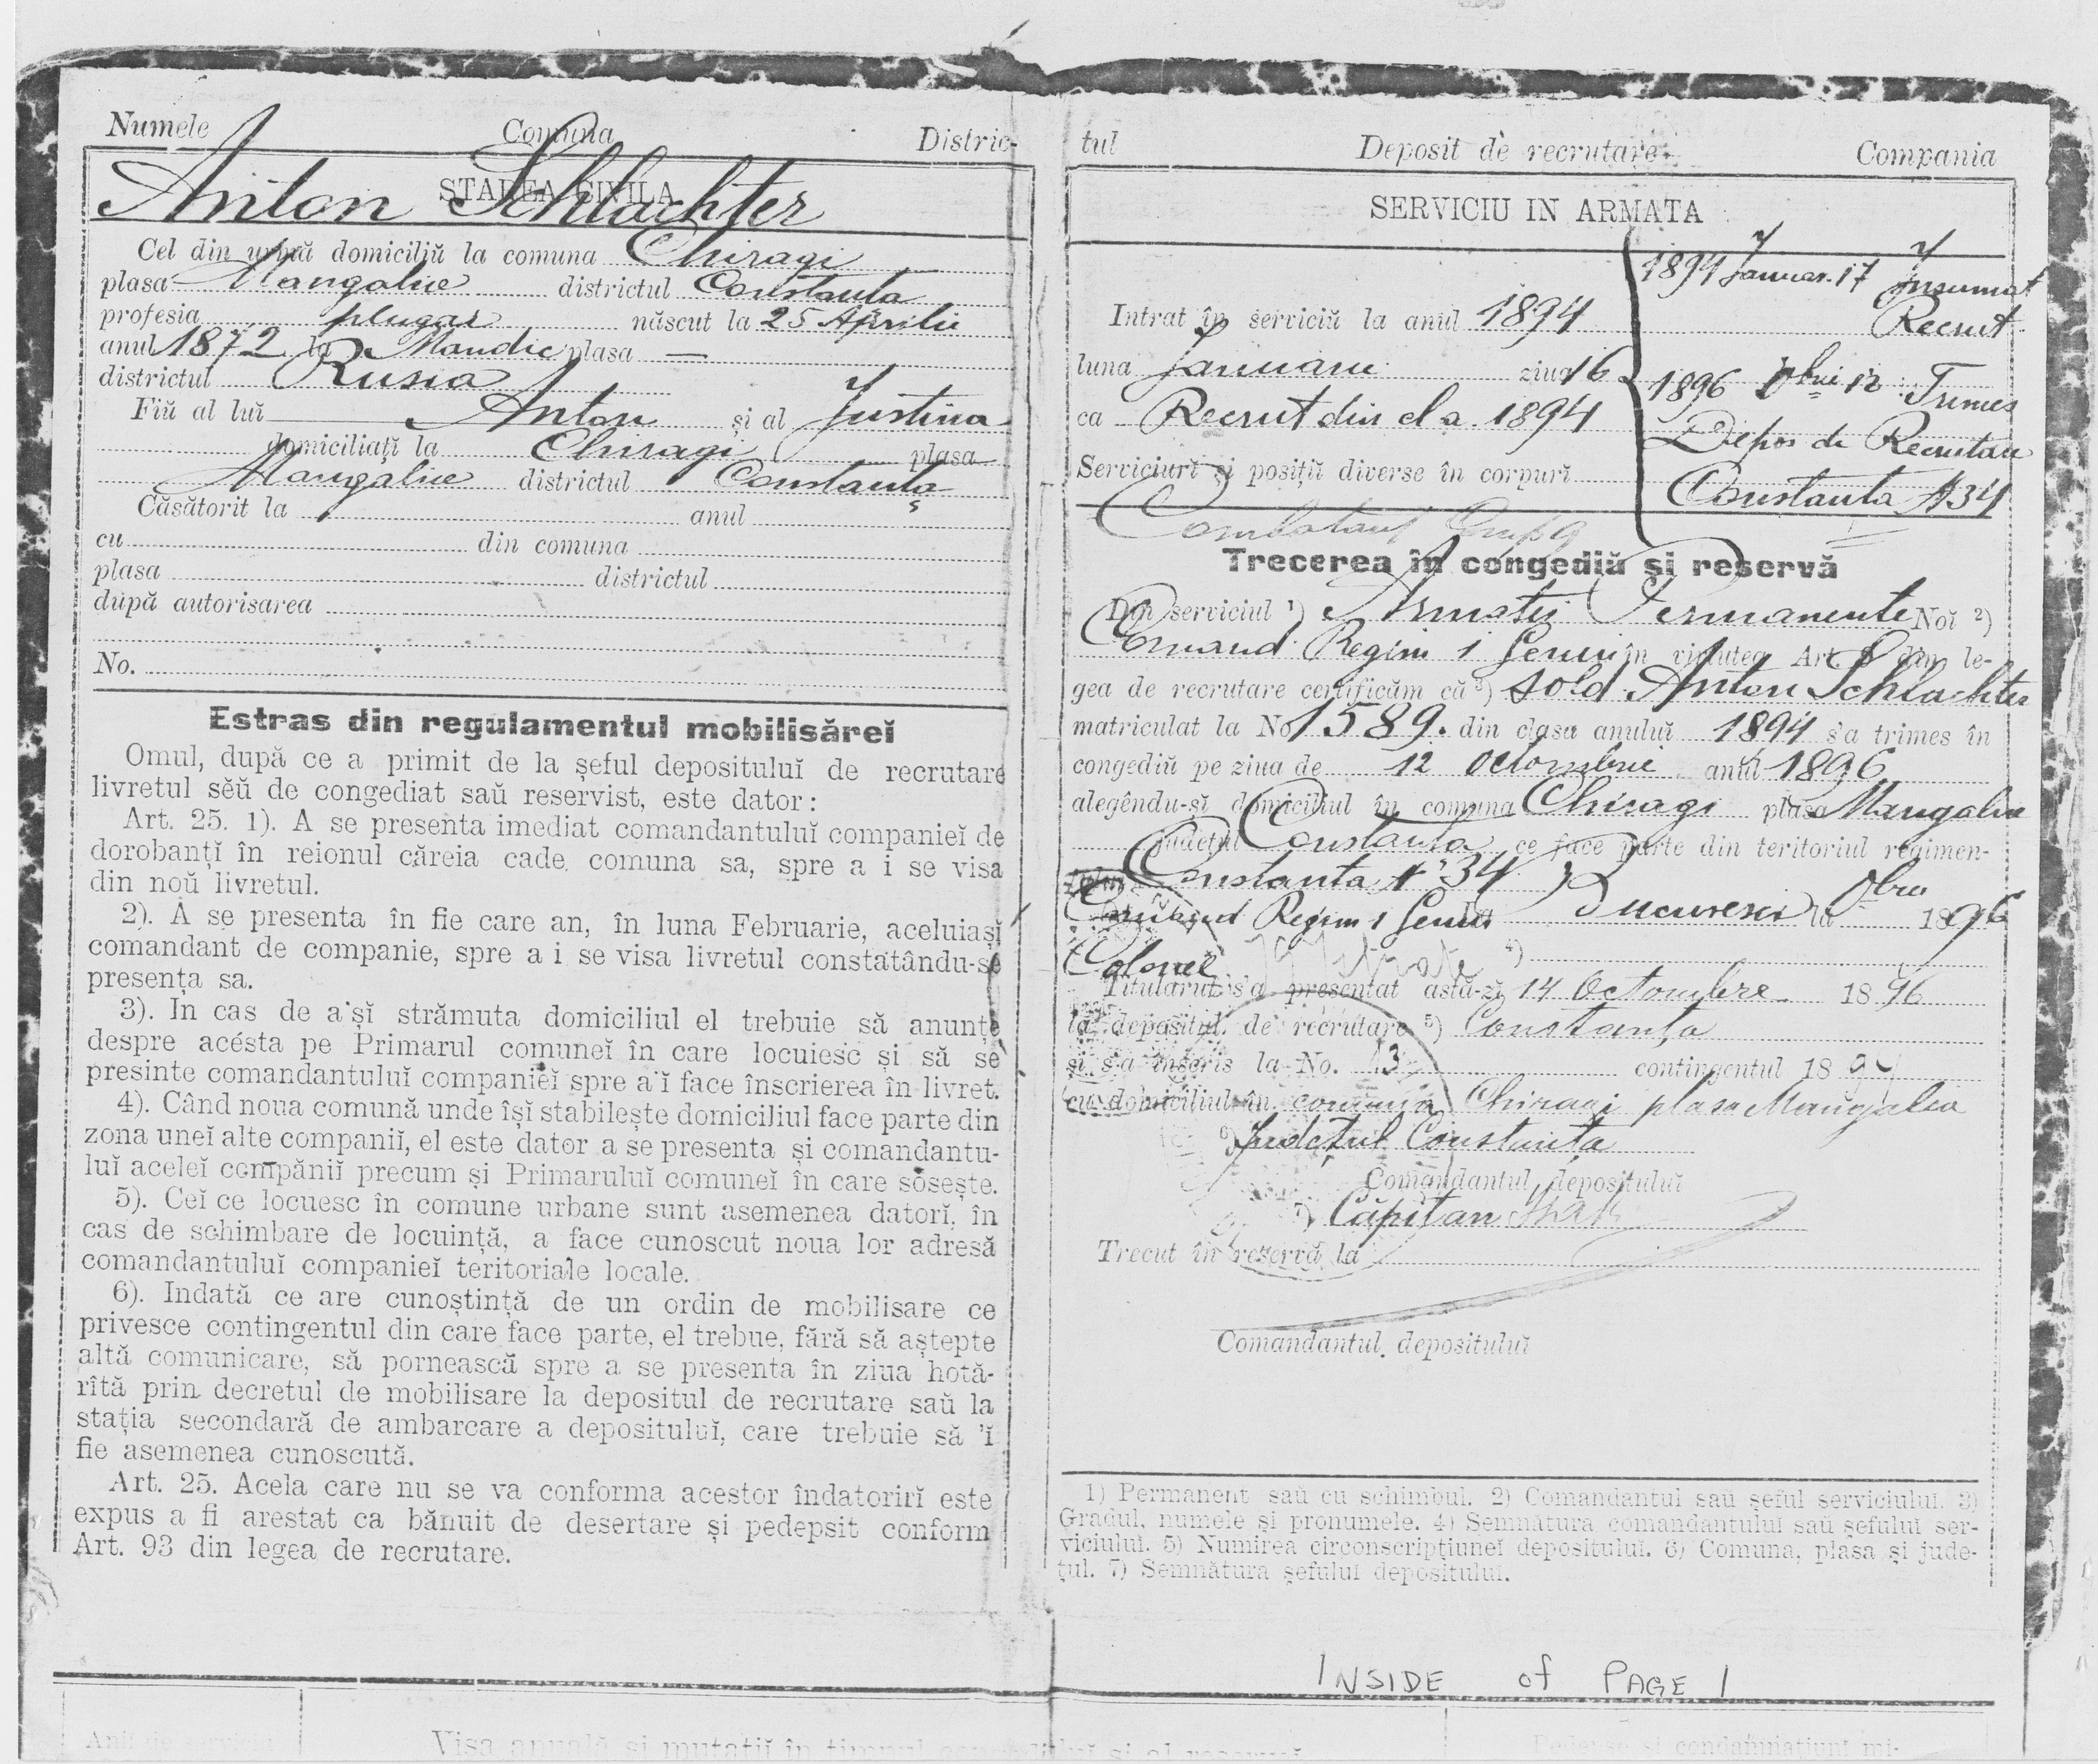 Numele Comuna Distric-
STAREA CIVILA
Anton Schlachter
Cel din urmă domiciliŭ la comuna Chiragi
plasa Mangaliie districtul Constanta
profesia plugar născut la 25 Aprilie
anul 1872 la Mandic plasa —
districtul Rusia
Fiŭ al luĭ Anton și al Justina
domiciliațĭ la Chiragi plasa
Mangaliie districtul Constanta
Căsătorit la anul
cu din comuna
plasa districtul
după autorisarea
No.
Estras din regulamentul mobilisăreĭ
Omul, după ce a primit de la șeful deposituluĭ de recrutare
livretul sĕŭ de congediat saŭ reservist, este dator:
Art. 25. 1). A se presenta imediat comandantuluĭ companieĭ de
dorobanțĭ în reionul căreia cade comuna sa, spre a i se visa
din noŭ livretul.
2). A se presenta în fie care an, în luna Februarie, aceluiașĭ
comandant de companie, spre a i se visa livretul constatându-se
presența sa.
3). In cas de a'șĭ strămuta domiciliul el trebuie să anunțe
despre acésta pe Primarul comuneĭ în care locuiesc și să se
presinte comandantuluĭ companieĭ spre a'ĭ face înscrierea în livret.
4). Când noua comună unde îșĭ stabilește domiciliul face parte din
zona uneĭ alte companiĭ, el este dator a se presenta și comandantu-
luĭ aceleĭ compăniĭ precum și Primaruluĭ comuneĭ în care sosește.
5). Ceĭ ce locuesc în comune urbane sunt asemenea datorĭ, în
cas de schimbare de locuință, a face cunoscut noua lor adresă
comandantuluĭ companieĭ teritoriale locale.
6). Indată ce are cunoștință de un ordin de mobilisare ce
privesce contingentul din care face parte, el trebue, fără să aștepte
altă comunicare, să pornească spre a se presenta în ziua hotă-
rîtă prin decretul de mobilisare la depositul de recrutare saŭ la
stația secondară de ambarcare a depositului, care trebuie să 'ĭ
fie asemenea cunoscută.
Art. 25. Acela care nu se va conforma acestor îndatorirĭ este
expus a fi arestat ca bănuit de desertare și pedepsit conform
Art. 93 din legea de recrutare.
tul Deposit de recrutare Compania
SERVICIU IN ARMATA
Intrat în serviciŭ la anul 1894
luna Januarie ziua 16
ca Recrut din cl a 1894
Serviciurĭ și posițiĭ diverse în corpurĭ
1894 Januar. 17
Recrut
1896 12 Trimes
Depos de Recrutare
Constanta # 34
Trecerea în congediŭ și reservă
Din serviciul 1) Armatei Permanente Noĭ 2)
Comand Regim 1 Geniu în virtutea Art. 8 din le-
gea de recrutare certificăm că 3) sold. Anton Schlachter
matriculat la No 1589. din clasa anuluĭ 1894 s'a trimes în
congediŭ pe ziua de 12 Octombrie anul 1896
alegêndu-șĭ domiciliul în comuna Chiragi plasa Mangalia
județul Constanta ce face parte din teritoriul regimen-
Constanta # 34
Comand Regim 1 Geniu Bucuresci la 1896
Colonel 4)
Titularul s'a presentat astă-zĭ 14 Octombre 1896
la depositul de recrutare 5) Constanța
și s'a înscris la No. 13 contingentul 1894
cu domiciliul în comuna Chiragi plasa Mangalia
6) Județul Constanța
Comandantul depositului
7) Căpitan
Trecut în reservă la
Comandantul depositului
1) Permanent saŭ cu schimbul. 2) Comandantul saŭ șeful serviciuluĭ. 3)
Gradul, numele și pronumele. 4) Semnătura comandantuluĭ saŭ șefuluĭ ser-
viciuluĭ. 5) Numirea circonscripțiuneĭ depositului. 6) Comuna, plasa și jude-
țul. 7) Semnătura șefuluĭ depositului.
INSIDE of PAGE 1
Anii de serviciu Visa anuală și mutațiĭ în timpul